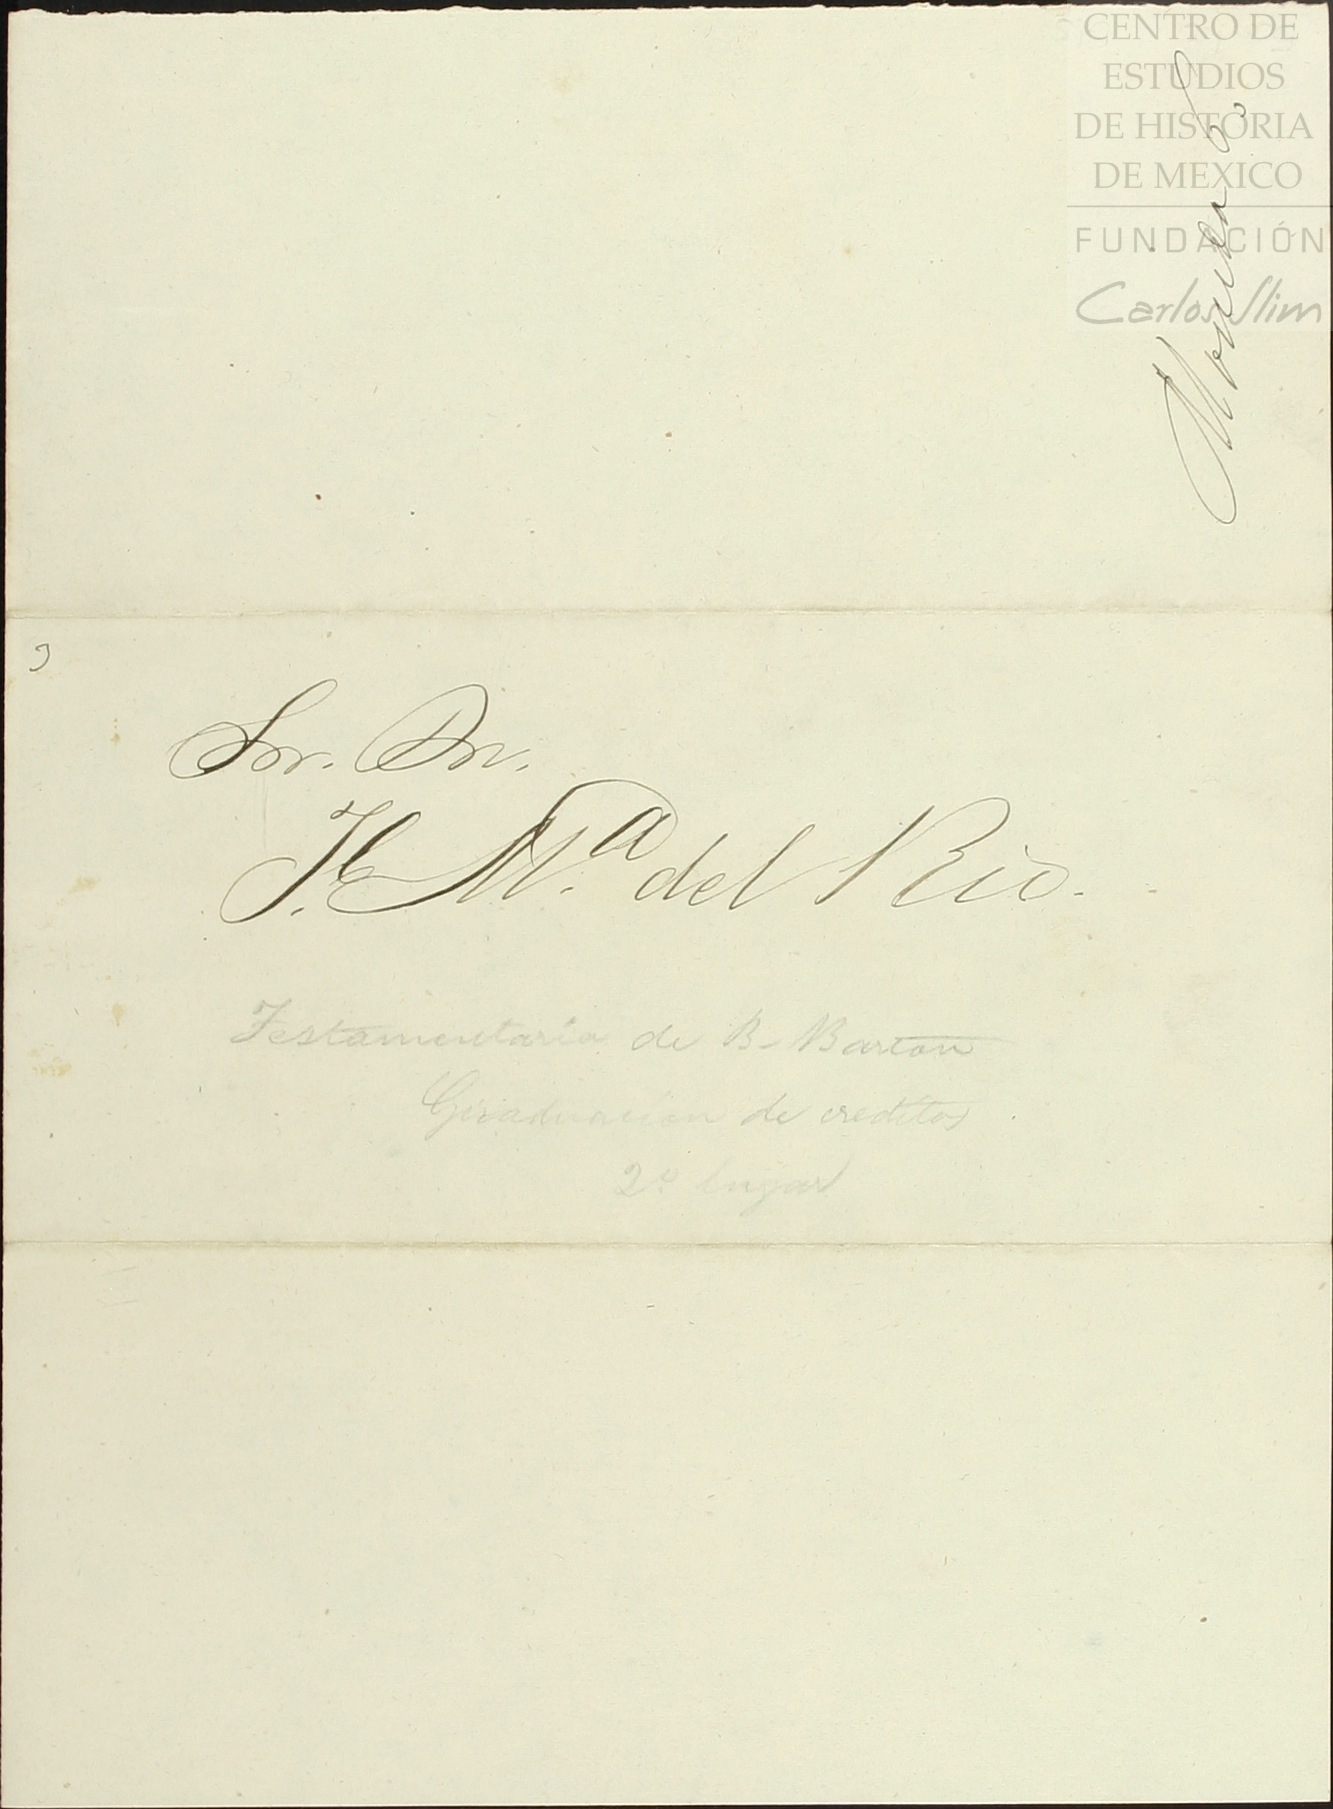 CENTRO DE
ESTUDIOS
DE HISTORIA
DE MEXICO
FUNDACIÓN
Carlos Slim
Sor. Dn.
J. E. M.ª del Rio.
Testamentaria de B. Barton
Graduacion de creditos
2º lugar